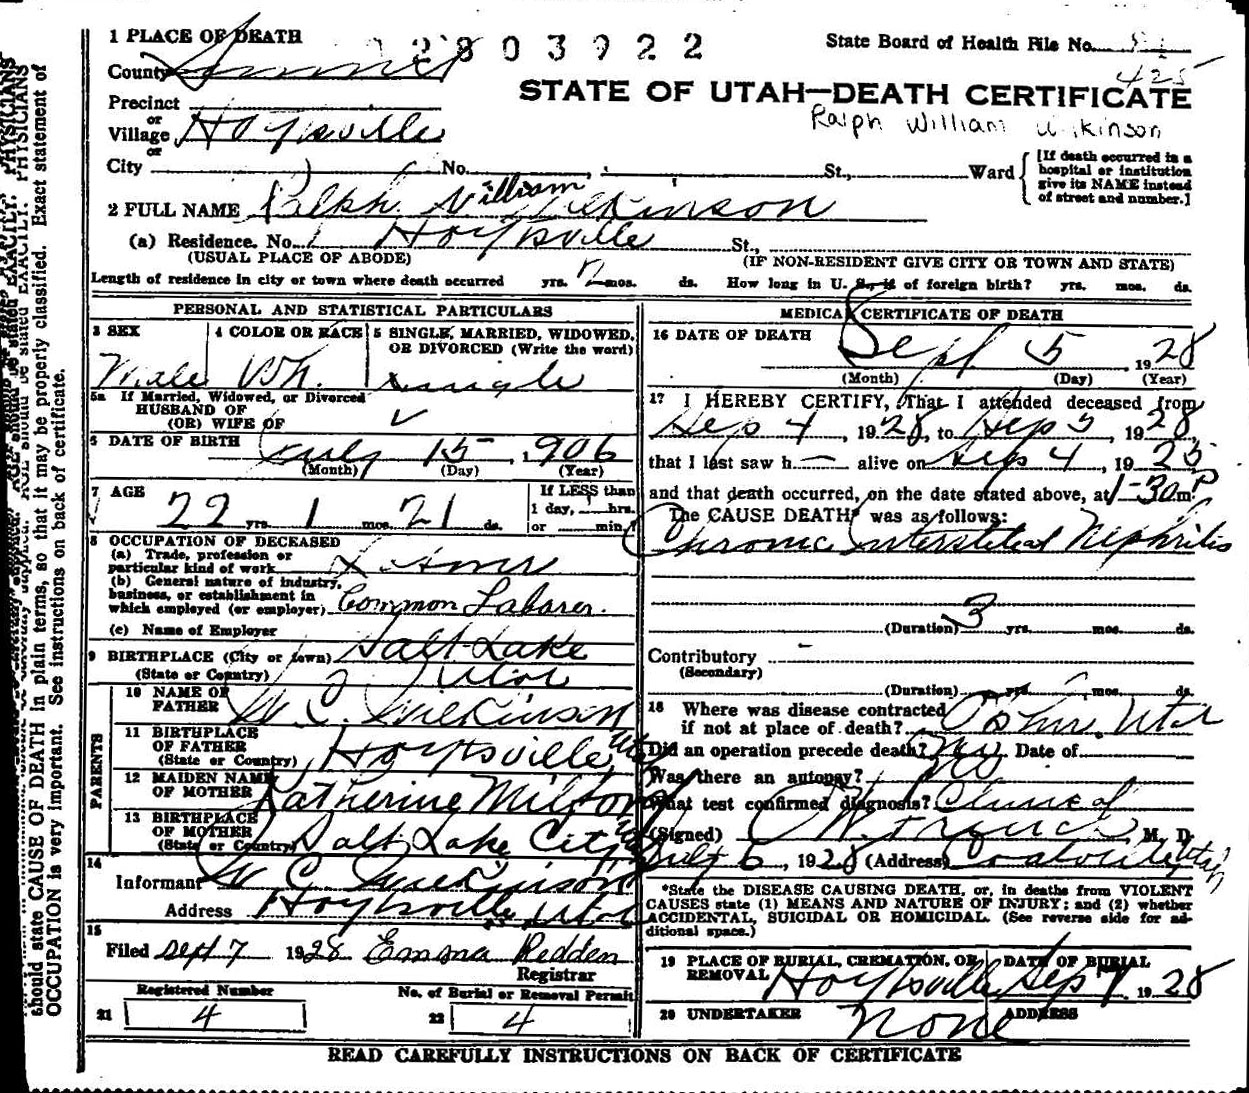 1 PLACE OF DEATH
2803922
State Board of Health File No.
425
County Summit
STATE OF UTAH—DEATH CERTIFICATE
Ralph William Wilkinson
Precinct
or
Village Hoytsville
or
City No. St., Ward
[If death occurred in a hospital or institution give its NAME instead of street and number.]
2 FULL NAME Ralph William Wilkinson
(a) Residence. No. Hoytsville St.,
(USUAL PLACE OF ABODE) (IF NON-RESIDENT GIVE CITY OR TOWN AND STATE)
Length of residence in city or town where death occurred yrs. 2 mos. ds. How long in U. S., if of foreign birth? yrs. mos. ds.
PERSONAL AND STATISTICAL PARTICULARS
3 SEX 4 COLOR OR RACE 5 SINGLE, MARRIED, WIDOWED, OR DIVORCED (Write the word)
Male Wh. single
5a If Married, Widowed, or Divorced
HUSBAND OF
(OR) WIFE OF
6 DATE OF BIRTH July 15, 1906
(Month) (Day) (Year)
7 AGE 22 yrs. 1 mos. 21 ds.
If LESS than 1 day, hrs. or min.
8 OCCUPATION OF DECEASED
(a) Trade, profession or particular kind of work
(b) General nature of industry, business, or establishment in which employed (or employer) Common Laborer.
(c) Name of Employer
9 BIRTHPLACE (City or town) Salt Lake
(State or Country) Utah
PARENTS
10 NAME OF FATHER W C. Wilkinson
11 BIRTHPLACE OF FATHER (State or Country) Hoytsville Utah
12 MAIDEN NAME OF MOTHER Katherine Milford
13 BIRTHPLACE OF MOTHER (State or Country) Salt Lake City Utah
14
Informant W C Wilkinson
Address Hoytsville Utah
15
Filed Sept 7 1928 Emma Redden
Registrar
Registered Number No. of Burial or Removal Permit
21 4 22 4
MEDICAL CERTIFICATE OF DEATH
16 DATE OF DEATH Sept 5 1928
(Month) (Day) (Year)
17 I HEREBY CERTIFY, That I attended deceased from
Sep 4, 1928, to Sep 5 1928
that I last saw h— alive on Sep 4, 1928
and that death occurred, on the date stated above, at 1-30 P m.
The CAUSE DEATH* was as follows:
Chronic Interstitial Nephritis
(Duration) 3 yrs. mos. ds.
Contributory
(Secondary)
(Duration) yrs. mos. ds.
18 Where was disease contracted
if not at place of death? Utah
Did an operation precede death? No Date of
Was there an autopsy? No
What test confirmed diagnosis? Clinical
(Signed) M. D.
6, 1928 (Address) Coalville, Utah
*State the DISEASE CAUSING DEATH, or, in deaths from VIOLENT
CAUSES state (1) MEANS AND NATURE OF INJURY; and (2) whether
ACCIDENTAL, SUICIDAL OR HOMICIDAL. (See reverse side for ad-
ditional space.)
19 PLACE OF BURIAL, CREMATION, OR REMOVAL DATE OF BURIAL
Hoytsville Sep 7 1928
20 UNDERTAKER ADDRESS
none
READ CAREFULLY INSTRUCTIONS ON BACK OF CERTIFICATE
should state CAUSE OF DEATH in plain terms, so that it may be properly classified. Exact statement of
OCCUPATION is very important. See instructions on back of certificate.